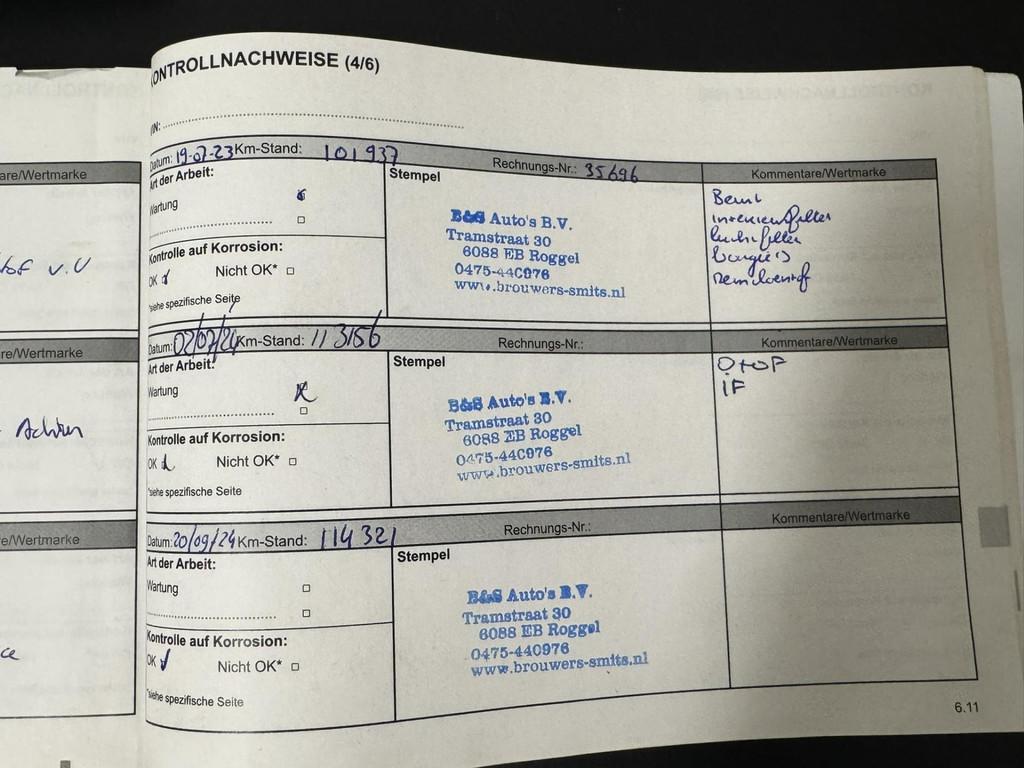 KONTROLLNACHWEISE (4/6)
VIN:
Datum: 19-07-23 Km-Stand: 101937 Rechnungs-Nr.: 35696 Kommentare/Wertmarke
Art der Arbeit:
Wartung
Kontrolle auf Korrosion:
OK Nicht OK*
*siehe spezifische Seite
Stempel
B&S Auto's B.V.
Tramstraat 30
6088 EB Roggel
0475-440976
www.brouwers-smits.nl
interieurfilter
luchtfilter
bougie's
Remvloeistof
Datum: 02/07/24 Km-Stand: 113156 Rechnungs-Nr.: Kommentare/Wertmarke
Art der Arbeit:
Wartung
Kontrolle auf Korrosion:
OK Nicht OK*
*siehe spezifische Seite
Stempel
B&S Auto's B.V.
Tramstraat 30
6088 EB Roggel
0475-440976
www.brouwers-smits.nl
O+OF
IF
Datum: 20/09/24 Km-Stand: 114321 Rechnungs-Nr.: Kommentare/Wertmarke
Art der Arbeit:
Wartung
Kontrolle auf Korrosion:
OK Nicht OK*
*siehe spezifische Seite
Stempel
B&S Auto's B.V.
Tramstraat 30
6088 EB Roggel
0475-440976
www.brouwers-smits.nl
6.11
are/Wertmarke
v.v
re/Wertmarke
Achter
e/Wertmarke
ce